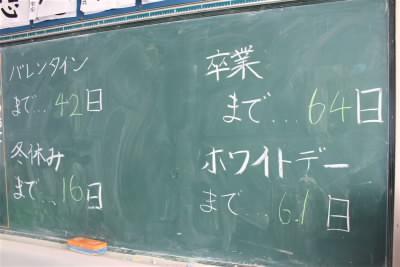 バレンタイン
まで...42日
冬休み
まで...16日
卒業
まで...64日
ホワイトデー
まで...61日